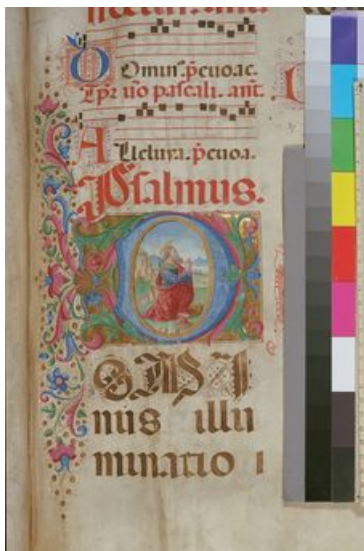 Dominꝰ p̃euoae.
Tpr̃ uo pascali. ant.
Alleluya. p̃euoa.
Psalmus.
DOMI
nus illu
minatio